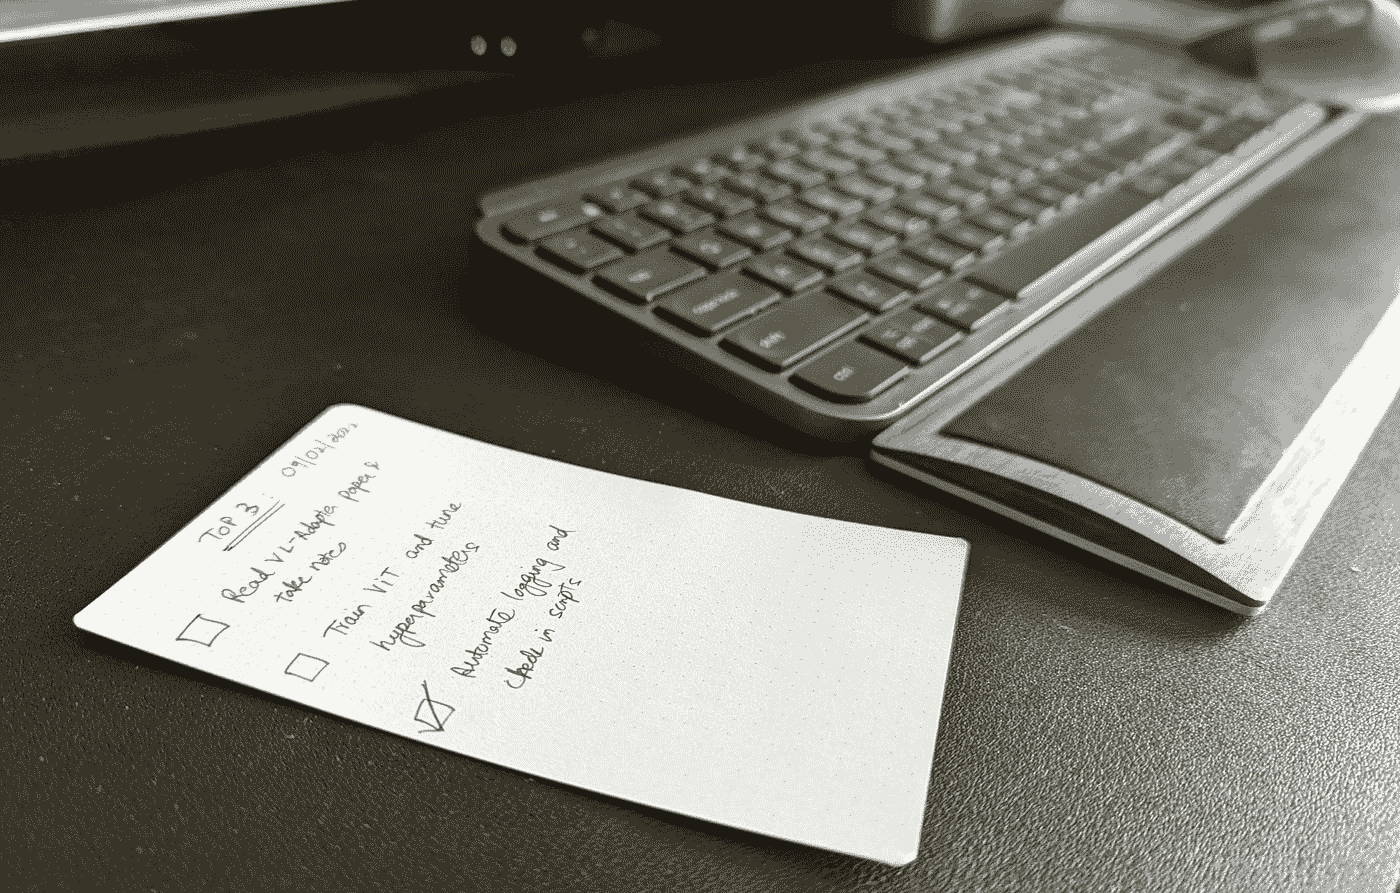 TOP 3 : 09/02/2022
Read VL-Adapter Paper &
take notes
Train ViT and tune
hyperparameters
Automate logging and
check in scripts
caps lock
shift
ctrl